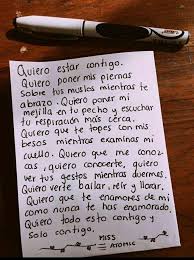 Quiero estar contigo.
Quiero poner mis piernas
sobre tus muslos mientras te
abrazo. Quiero poner mi
mejilla en tu pecho y escuchar
tu respiración más cerca.
Quiero que te topes con mis
besos mientras examinas mi
cuello. Quiero que me conoz-
cas, quiero conocerte, quiero
ver tus gestos mientras duermes.
Quiero verte bailar, reír y llorar.
Quiero que te enamores de mi
como nunca te has enamorado.
Quiero todo esto contigo y
solo contigo.
MISS
ATOMIC